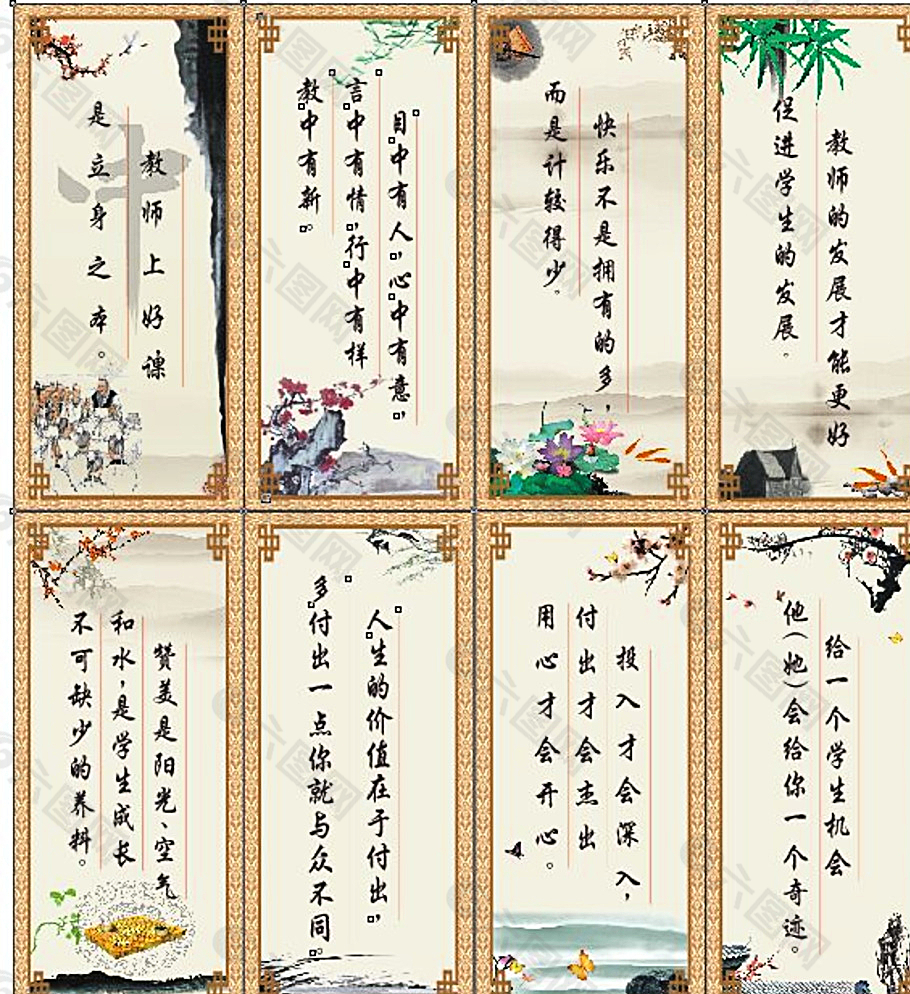 教师上好课
是立身之本。
目中有人，心中有意，
言中有情，行中有样
教中有新。
快乐不是拥有的多，
而是计较得少。
教师的发展才能更好
促进学生的发展。
赞美是阳光、空气
和水，是学生成长
不可缺少的养料。
人生的价值在于付出，
多付出一点你就与众不同。
投入才会深入，
付出才会杰出
用心才会开心。
给一个学生机会
他（她）会给你一个奇迹。
六图网